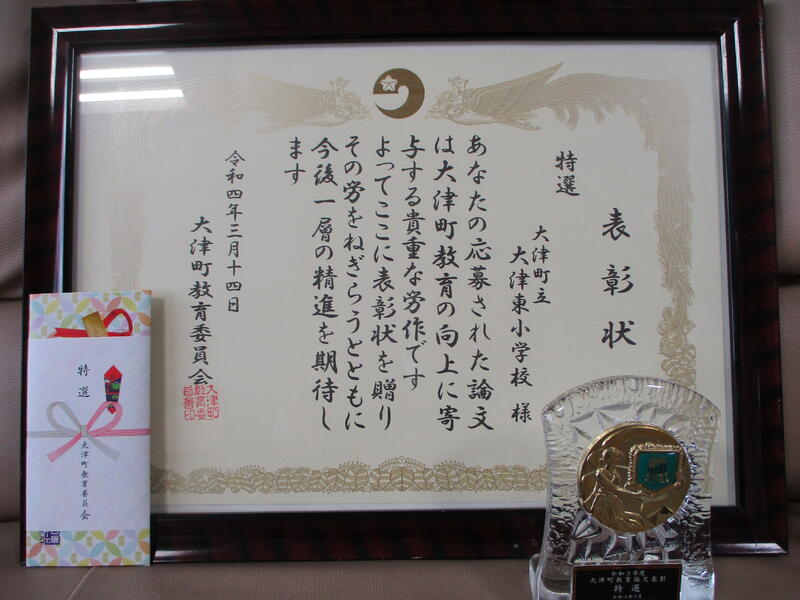 表彰状
特選
大津町立
大津東小学校 様
あなたの応募された論文
は大津町教育の向上に寄
与する貴重な労作です
よってここに表彰状を贈り
その労をねぎらうとともに
今後一層の精進を期待し
ます
令和四年三月十四日
大津町教育委員会
特選
大津町教育委員会
令和3年度
大津町教育論文表彰
特選